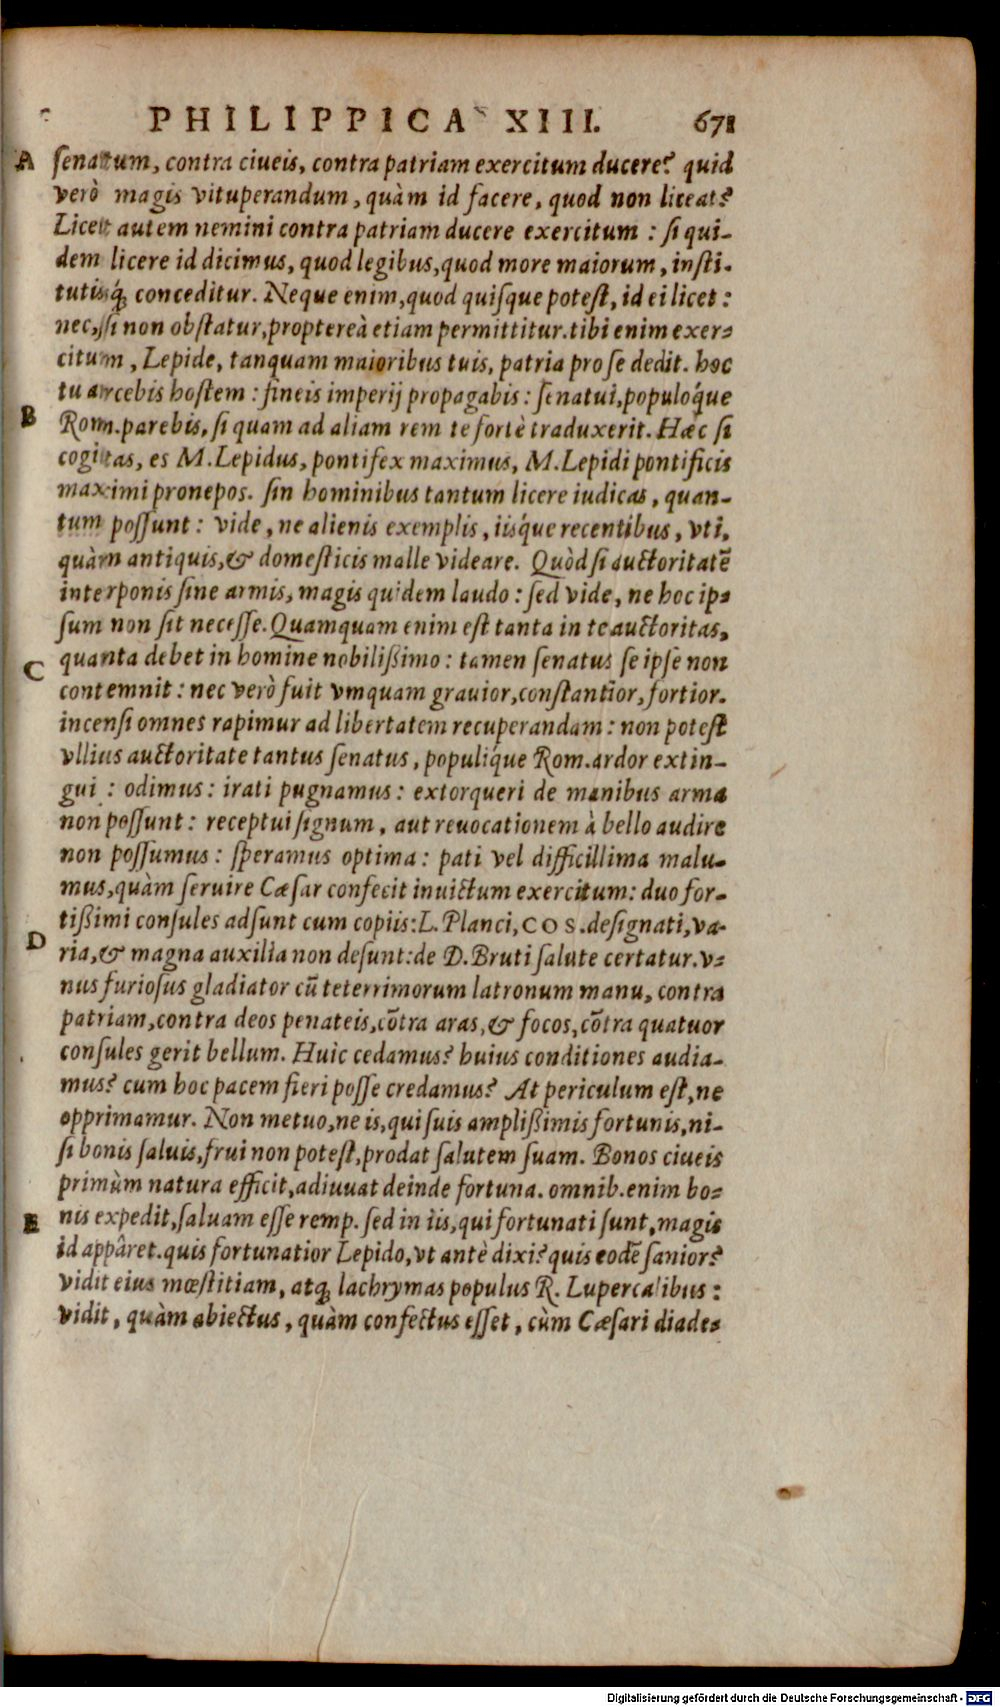 PHILIPPICA XIII. 671
A senatum, contra ciueis, contra patriam exercitum ducere? quid
verò magis vituperandum, quàm id facere, quod non liceat?
Licet autem nemini contra patriam ducere exercitum : si qui-
dem licere id dicimus, quod legibus, quod more maiorum, insti-
tutisq́; conceditur. Neque enim, quod quisque potest, id ei licet :
nec, si non obstatur, proptereà etiam permittitur. tibi enim exer-
citum, Lepide, tanquam maioribus tuis, patria pro se dedit. hoc
tu arcebis hostem : fineis imperij propagabis : senatui, populoq́ue
B Rom. parebis, si quam ad aliam rem te fortè traduxerit. Hæc si
cogitas, es M. Lepidus, pontifex maximus, M. Lepidi pontificis
maximi pronepos. sin hominibus tantum licere iudicas, quan-
tum possunt : vide, ne alienis exemplis, iisq́ue recentibus, vti,
quàm antiquis, & domesticis malle videare. Quòd si auctoritatē
interponis sine armis, magis quidem laudo : sed vide, ne hoc ip-
sum non sit necesse. Quamquam enim est tanta in te auctoritas,
C quanta debet in homine nobilißimo : tamen senatus se ipse non
contemnit : nec verò fuit vmquam grauior, constantior, fortior.
incensi omnes rapimur ad libertatem recuperandam : non potest
vllius auctoritate tantus senatus, populiq́ue Rom. ardor extin-
gui : odimus : irati pugnamus : extorqueri de manibus arma
non possunt : receptui signum, aut reuocationem à bello audire
non possumus : speramus optima : pati vel difficillima malu-
mus, quàm seruire Cæsar confecit inuictum exercitum : duo for-
tißimi consules adsunt cum copiis : L. Planci, COS. designati, va-
D ria, & magna auxilia non desunt : de D. Bruti salute certatur. v-
nus furiosus gladiator cū teterrimorum latronum manu, contra
patriam, contra deos penateis, cōtra aras, & focos, cōtra quatuor
consules gerit bellum. Huic cedamus? huius conditiones audia-
mus? cum hoc pacem fieri posse credamus? At periculum est, ne
opprimamur. Non metuo, ne is, qui suis amplißimis fortunis, ni-
si bonis saluis, frui non potest, prodat salutem suam. Bonos ciueis
primùm natura efficit, adiuuat deinde fortuna. omnib. enim bo-
E nis expedit, saluam esse remp. sed in iis, qui fortunati sunt, magis
id appâret. quis fortunatior Lepido, vt antè dixi? quis eodē sanior?
vidit eius mœstitiam, atq; lachrymas populus R. Lupercalibus :
vidit, quàm abiectus, quàm confectus esset, cùm Cæsari diade-
Digitalisierung gefördert durch die Deutsche Forschungsgemeinschaft - DFG